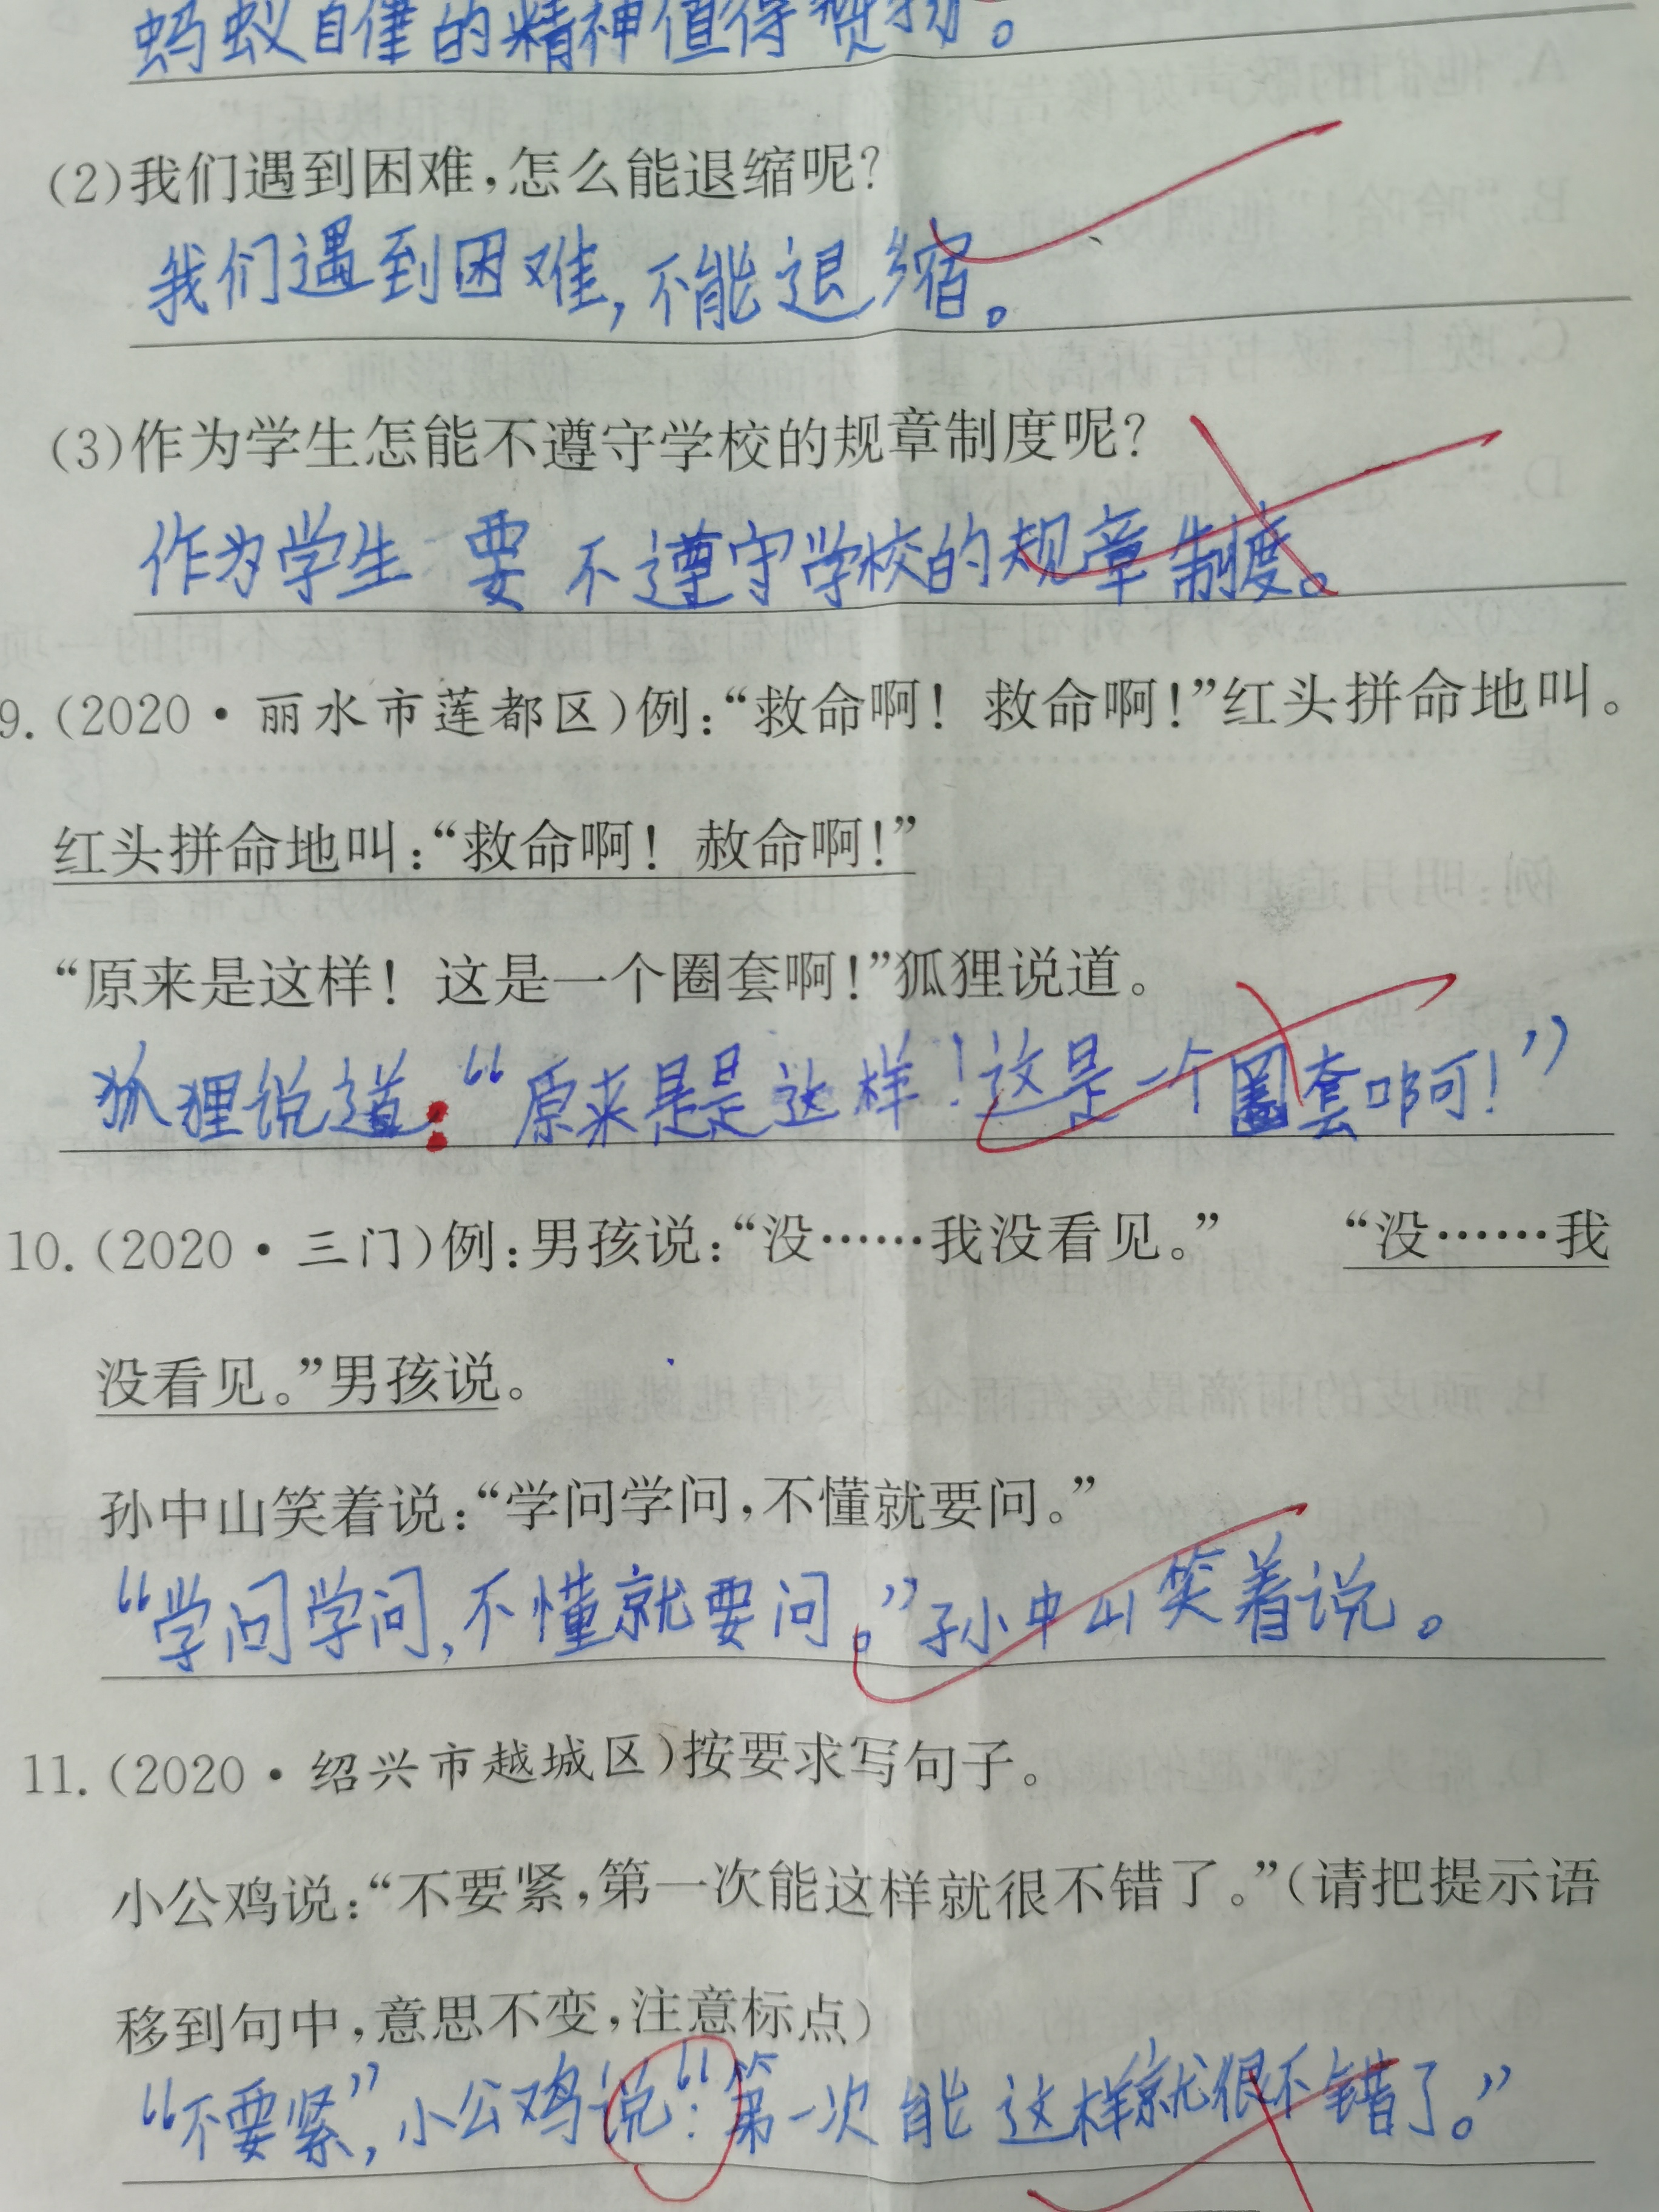 蚂蚁自僅的精神值得赞扬。
(2)我们遇到困难,怎么能退缩呢?
我们遇到困难,不能退缩。
(3)作为学生怎能不遵守学校的规章制度呢?
作为学生要不遵守学校的规章制度。
9.(2020·丽水市莲都区)例:“救命啊! 救命啊!”红头拼命地叫。
红头拼命地叫:“救命啊! 赦命啊!”
“原来是这样! 这是一个圈套啊!”狐狸说道。
狐狸说道:“原来是是这样!这是一个圈套啊!”
10.(2020·三门)例:男孩说:“没……我没看见。” “没……我
没看见。”男孩说。
孙中山笑着说:“学问学问,不懂就要问。”
“学问学问,不懂就要问。”孙中山笑着说。
11.(2020·绍兴市越城区)按要求写句子。
小公鸡说:“不要紧,第一次能这样就很不错了。”(请把提示语
移到句中,意思不变,注意标点)
“不要紧”,小公鸡说:“第一次能这样就很不错了。”